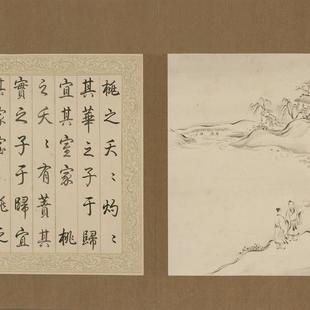 桃之夭〻灼〻
其華之子于歸
宜其室家 桃
之夭〻有蕡其
實之子于歸宜
其家室 桃之